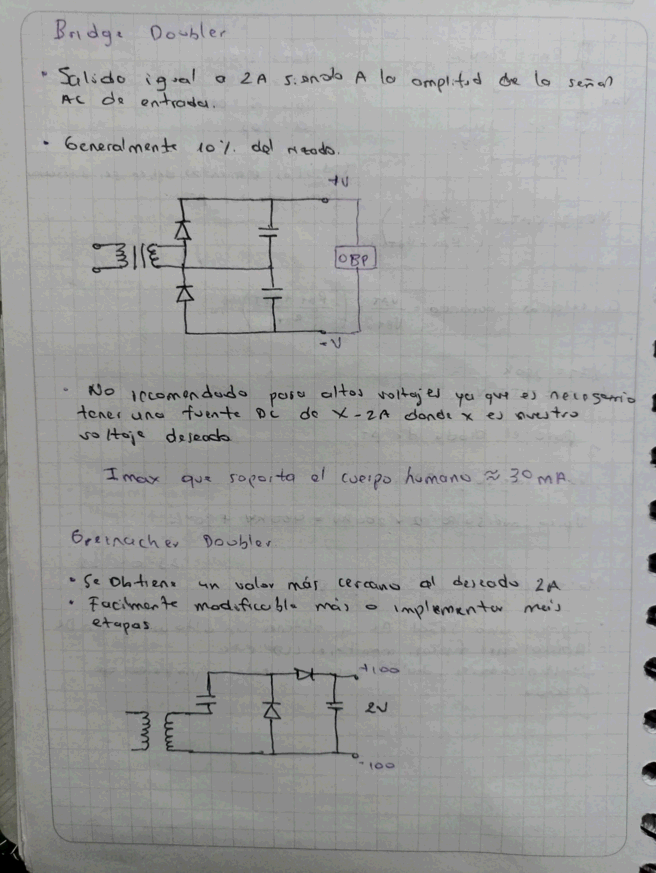 Bridge Doubler
• Salida igual a 2A siendo A la amplitud de la señal
AC de entrada.
• Generalmente 10% del rizado.
+V
OBP
-V
• No recomendado para altos voltajes ya que es necesario
tener una fuente DC de X-2A donde x es nuestro
voltaje deseado
Imax que soporta el cuerpo humano ≈ 30 mA.
Greinacher Doubler
• Se Obtiene un valor más cercano al deseado 2A
• Facilmente modificable más a implementar más
etapas
+100
2V
-100